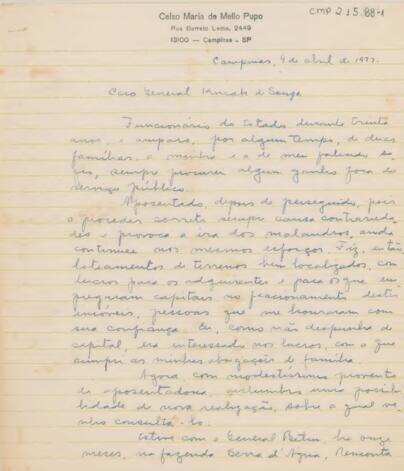 CMP 2.15.88-1
Celso Maria de Mello Pupo
Rua Barreto Leme, 2449
13100 — Campinas - SP
Campinas, 9 de abril de 1977.
Caro General de Souza
Funcionário do Estado durante trinta
anos, e amparo, por algum tempo, de duas
famílias, a minha e a de meu falecido so-
gro, sempre procurei algum ganho fora do
serviço público.
Aposentado, depois de perseguido, pois
o proceder correto sempre causa contrarieda-
des e provoca a ira dos malandros, ainda
continuei nos mesmos esforços. Fiz, então,
loteamentos de terrenos bem localizados, com
lucros para os adquirentes e para os que em-
pregavam capitais no destes
imóveis, pessoas que me honraram com
sua confiança. Eu, como não despunha de
capital, era interessado nos lucros, com o que
cumpri as minhas obrigações de família.
Agora com modestíssimos proventos
de aposentadoria, vislumbro uma possibi-
lidade de nova realização, sobre a qual ve-
nho consultá-lo.
Estive com o General, há onze
meses, na fazenda Serra d'Água,